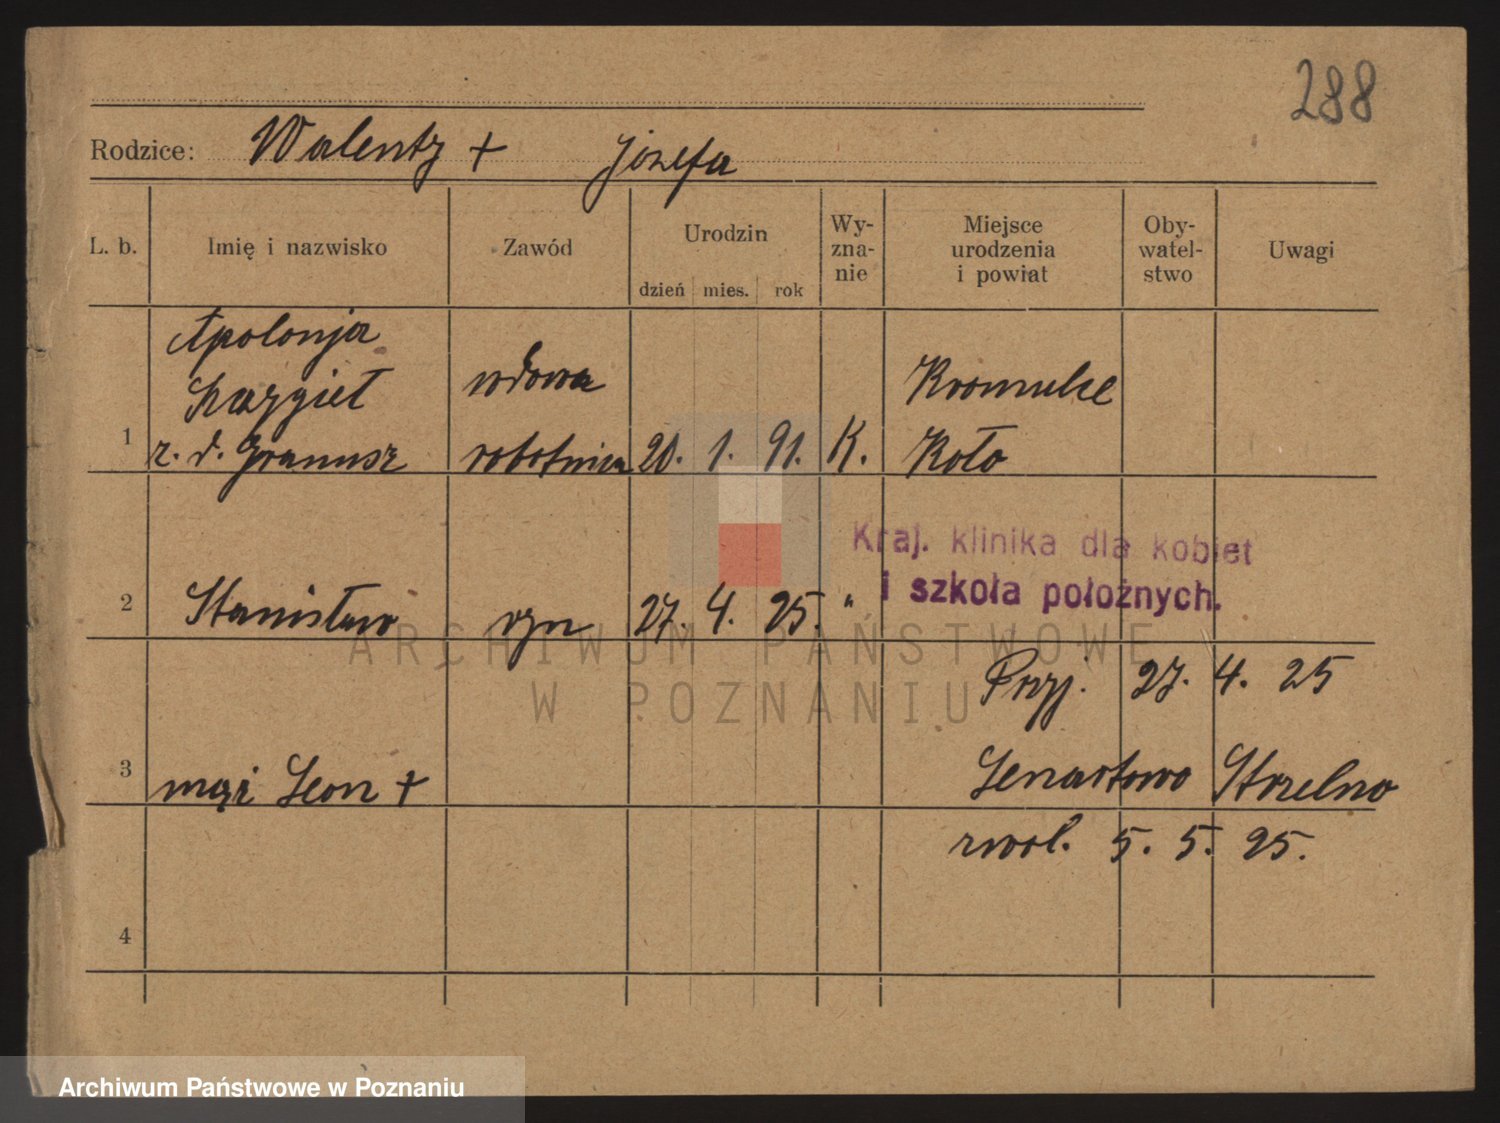 288
Rodzice: Walenty + Józefa
L. b. Imię i nazwisko Zawód Urodzin dzień mies. rok Wy-zna-nie Miejsce urodzenia i powiat Oby-watel-stwo Uwagi
Apolonja
wdowa
1 z. d. Granusz robotnica 20. 1. 91. K. Koło
Kraj. klinika dla kobiet
i szkoła położnych.
2 Stanisław syn 27. 4. 25. "
ARCHIWUM PAŃSTWOWE
W POZNANIU
Przyj. 27. 4. 25
3 mąż Leon + Lenartowo Strzelno
zwol. 5. 5. 25.
4
Archiwum Państwowe w Poznaniu